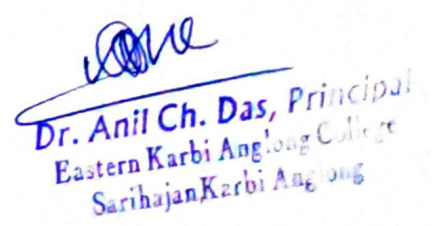 Dr. Anil Ch. Das, Principal
Eastern Karbi Anglong College
Sarihajan,Karbi Anglong